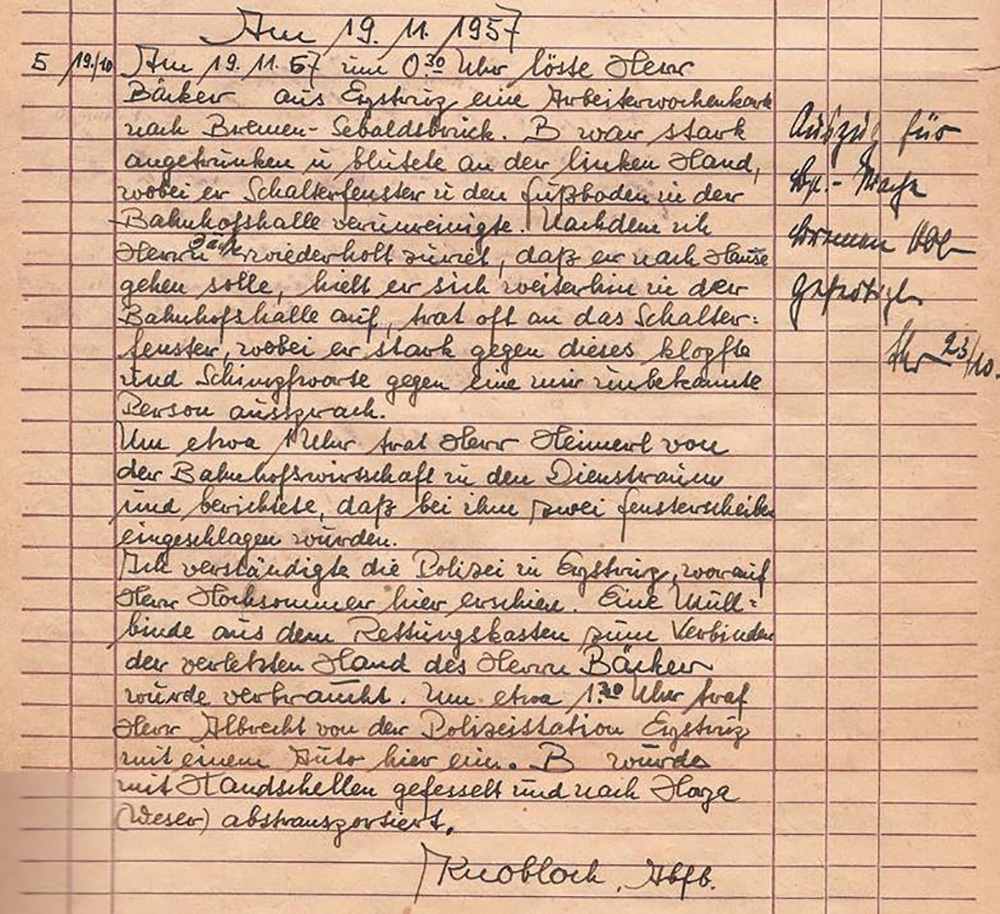 Am 19. 11. 1957
5 19./10 Am 19. 11. 57 um 0.30 Uhr löste Herr
Bäcker aus Eystrup eine Arbeiterwochenkarte
nach Bremen-Sebaldsbrück. B war stark
angetrunken u blutete an der linken Hand,
wobei er Schalterfenster u den Fußboden in der
Bahnhofshalle verunreinigte. Nachdem ich
Herrn Bäcker wiederholt zuriet, daß er nach Hause
gehen solle, hielt er sich weiterhin in der
Bahnhofshalle auf, trat oft an das Schalter=
fenster, wobei er stark gegen dieses klopfte
und Schimpfworte gegen eine mir unbekannte
Person aussprach.
Um etwa 1 Uhr trat Herr Heimerl von
der Bahnhofswirtschaft in den Dienstraum
und berichtete, daß bei ihm zwei Fensterscheiben
eingeschlagen wurden.
Ich verständigte die Polizei in Eystrup, worauf
Herr Hochsommer hier erschien. Eine Mull=
binde aus dem Rettungskasten zum Verbinden
der verletzten Hand des Herrn Bäcker
wurde verbraucht. Um etwa 1.30 Uhr traf
Herr Albrecht von der Polizeistation Eystrup
mit einem Auto hier ein. B wurde
mit Handschellen gefesselt und nach Hoya
(Weser) abstransportiert.
Knobloch, Abfb.
Auszug für
Bp.-Wache
Bremen Hbf
gefertigt.
23/10.